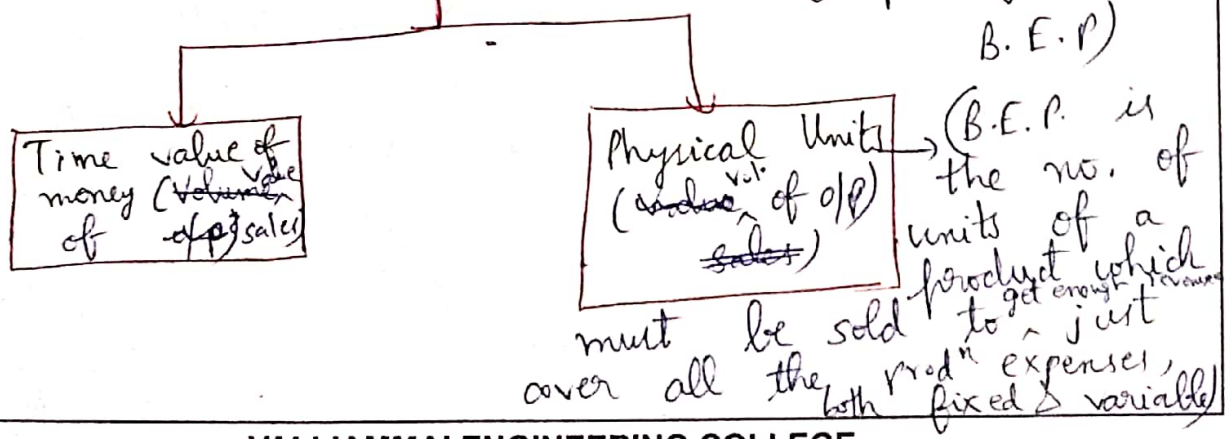 B. E. P)
Time value of
money (Volume value
of o/p) sales)
Physical Units
(value vol. of o/p)
sales)
(B.E.P. is
the no. of
units of a
product which
must be sold to get enough revenue just
cover all the prodn expenses,
both fixed & variable)
VALLIAMMAI ENGINEERING COLLEGE